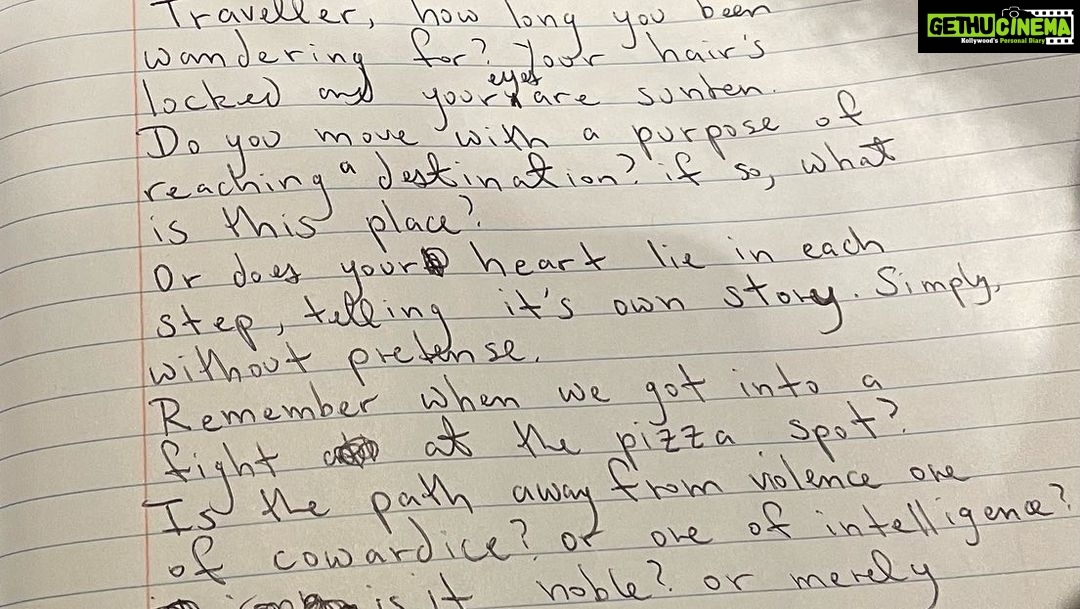 Traveller, how long you been
GETHU CINEMA
Kollywood's Personal Diary
wandering for? Your hair's
locked and your eyes are sunten.
Do you move with a purpose of
reaching a destination? if so, what
is this place?
Or does your heart lie in each
step, telling it's own story. Simply,
without pretense.
Remember when we got into a
fight at the pizza spot?
Is the path away from violence one
of cowardice? or one of intelligence?
is it noble? or merely